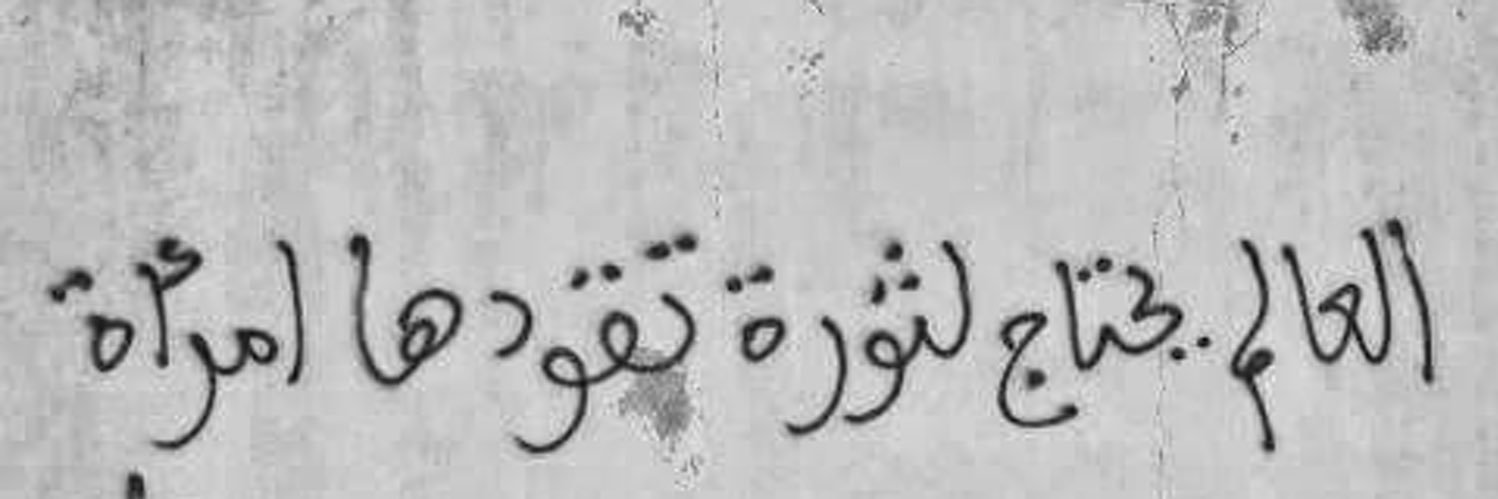 العالم يحتاج لثورة تقودها امرأة